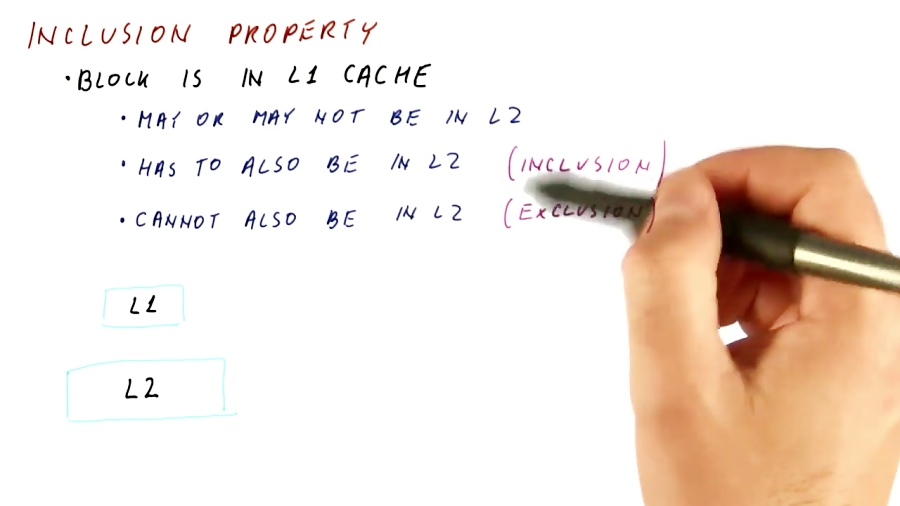 INCLUSION PROPERTY
• BLOCK IS IN L1 CACHE
• MAY OR MAY NOT BE IN L2
• HAS TO ALSO BE IN L2 (INCLUSION)
• CANNOT ALSO BE IN L2 (EXCLUSION)
L1
L2